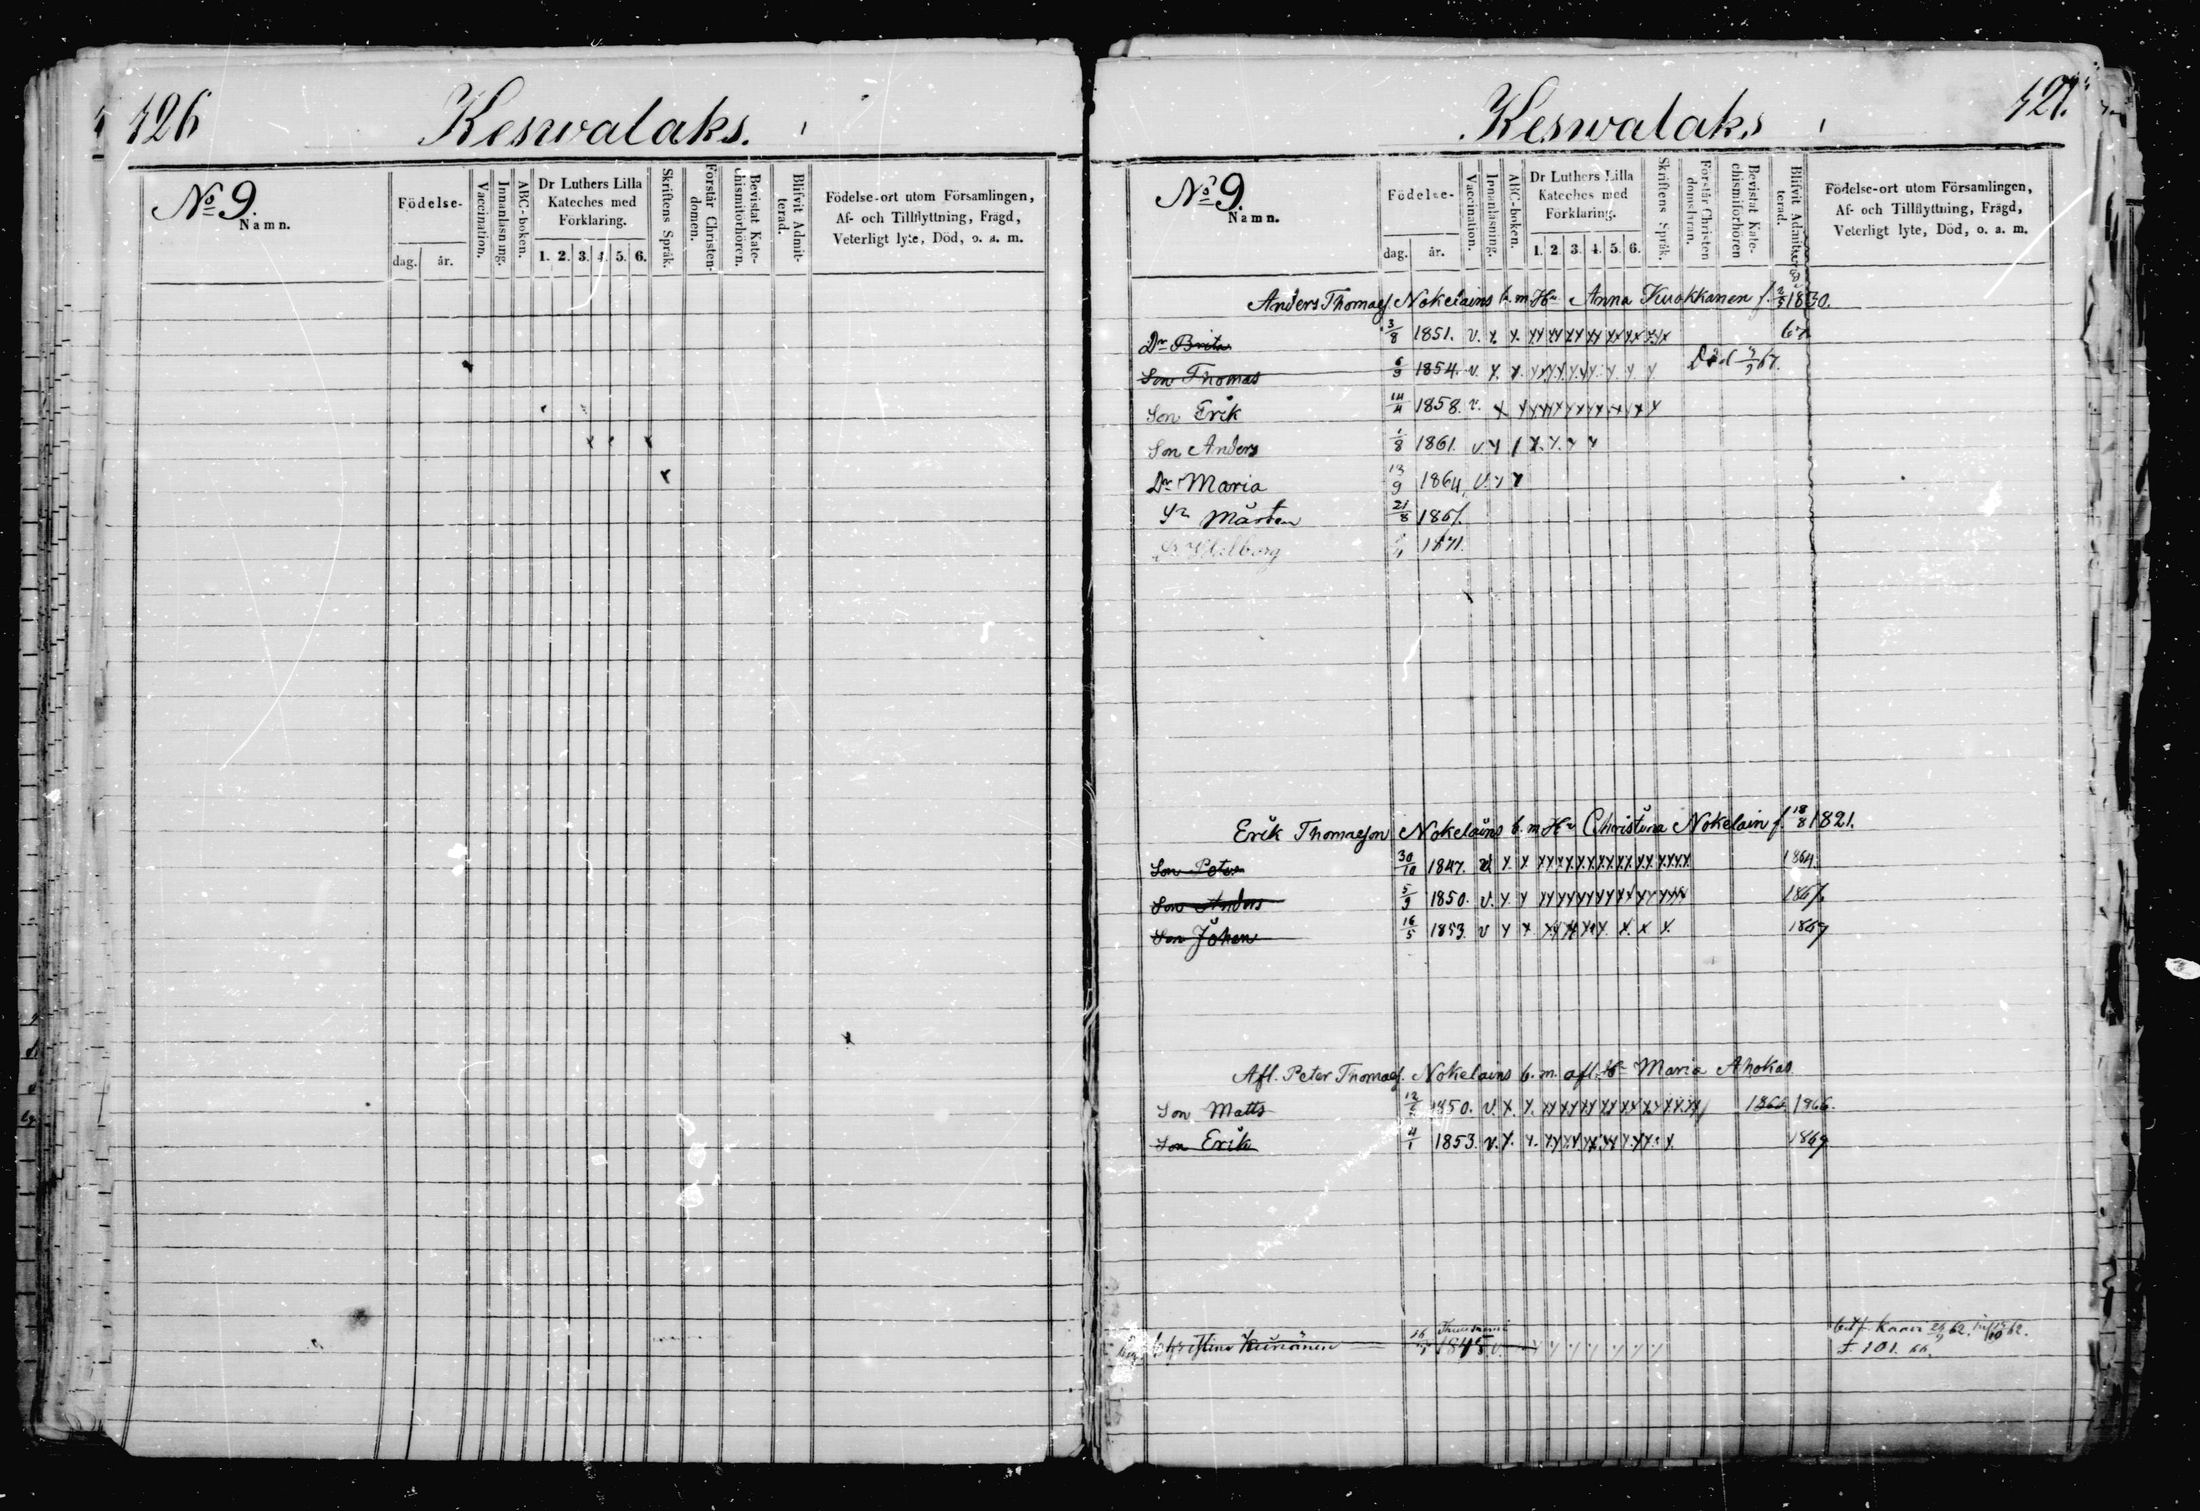 126
Keswalaks.
No 9.
Namn.
Födelse-
dag. år.
Vaccination.
Innanläsning.
ABC-boken.
Dr Luthers Lilla Kateches med Förklaring.
1. 2. 3. 4. 5. 6.
Skriftens Språk.
Förstår Christendomen.
Bevistat Katechismiförhören.
Blifvit Admitterad.
Födelse-ort utom Församlingen,
Af- och Tillflyttning, Frägd,
Veterligt lyte, Död, o. a. m.
Keswalaks
127.
No 9.
Namn.
Födelse-
dag. år.
Vaccination.
Innanläsning.
ABC-boken.
Dr Luthers Lilla Kateches med Förklaring.
1. 2. 3. 4. 5. 6.
Skriftens Språk.
Förstår Christendomsläran.
Bevistat Katechismiförhören
Blifvit Admitterad.
Födelse-ort utom Församlingen,
Af- och Tillflyttning, Frägd,
Veterligt lyte, Död, o. a. m.
Anders Thomass. Nokelains b. m. Hu Anna Kuokkanen f. 1830.
Dr Brita 3/8 1851. v. x x. xx xx xx xx xx xx xx 67.
Son Thomas 6/9 1854. v. x. x. Död 67.
Son Erik 14/4 1858. v. x x
Son Anders 1/8 1861. v x
Dr Maria 13/9 1864. v. x x
Sn Mårten 21/8 1867.
Walborg 1871.
Erik Thomasson Nokelains b. m Hu Christina Nokelain f. 18/8 1821.
Son Peter 30/10 1847. x. x xx xx xx xx xx xx xxxx 1864.
Son Anders 5/9 1850. v. x. x xx xx xx xx xx xx 1867.
Son Johan 16/5 1853. v x x xx xx xx x. x. x x. 1869
Afl. Peter Thomass. Nokelains b. m. afl. Hu Maria Ahokas
Son Matts 1850. v. x. x. xx xx xx xx xx xx 1866. 1866.
Son Erik 4/1 1853. v. x. x. 1869
Christina 16 1845 v.
Kaavi 62.
f. 101. 66.